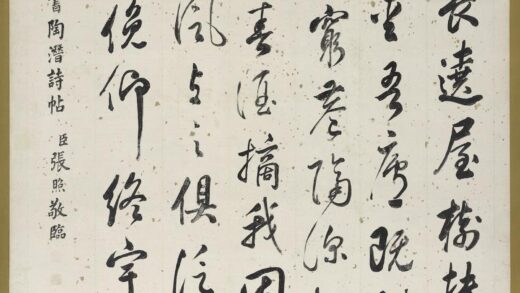 長遶屋樹扶
愛吾廬既
窮巷隔深
春酒摘我園
風与之俱泛
俛仰終宇
書陶潛詩帖 臣張照敬臨